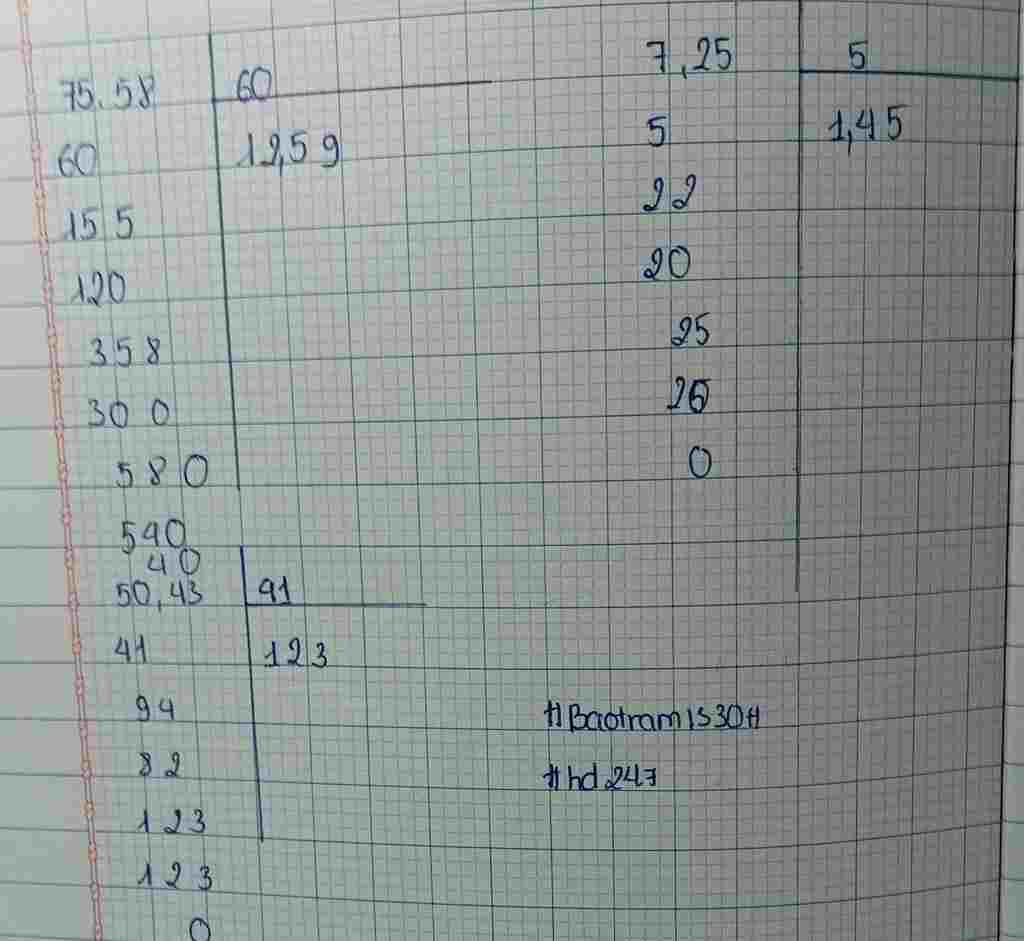 75,58 60
60 12,59
15 5
120
358
30 0
58 0
540
40
7,25 5
5 1,45
22
20
25
25
0
50,43 41
41 123
94
82
123
123
0
#Baotram1530#
#hd247